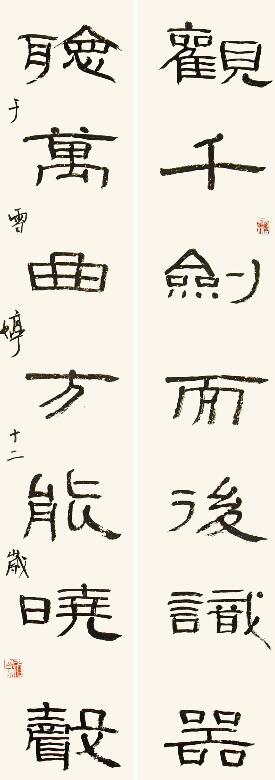 觀千劍而後識器
聽萬曲方能曉聲
于雪婷十二歲